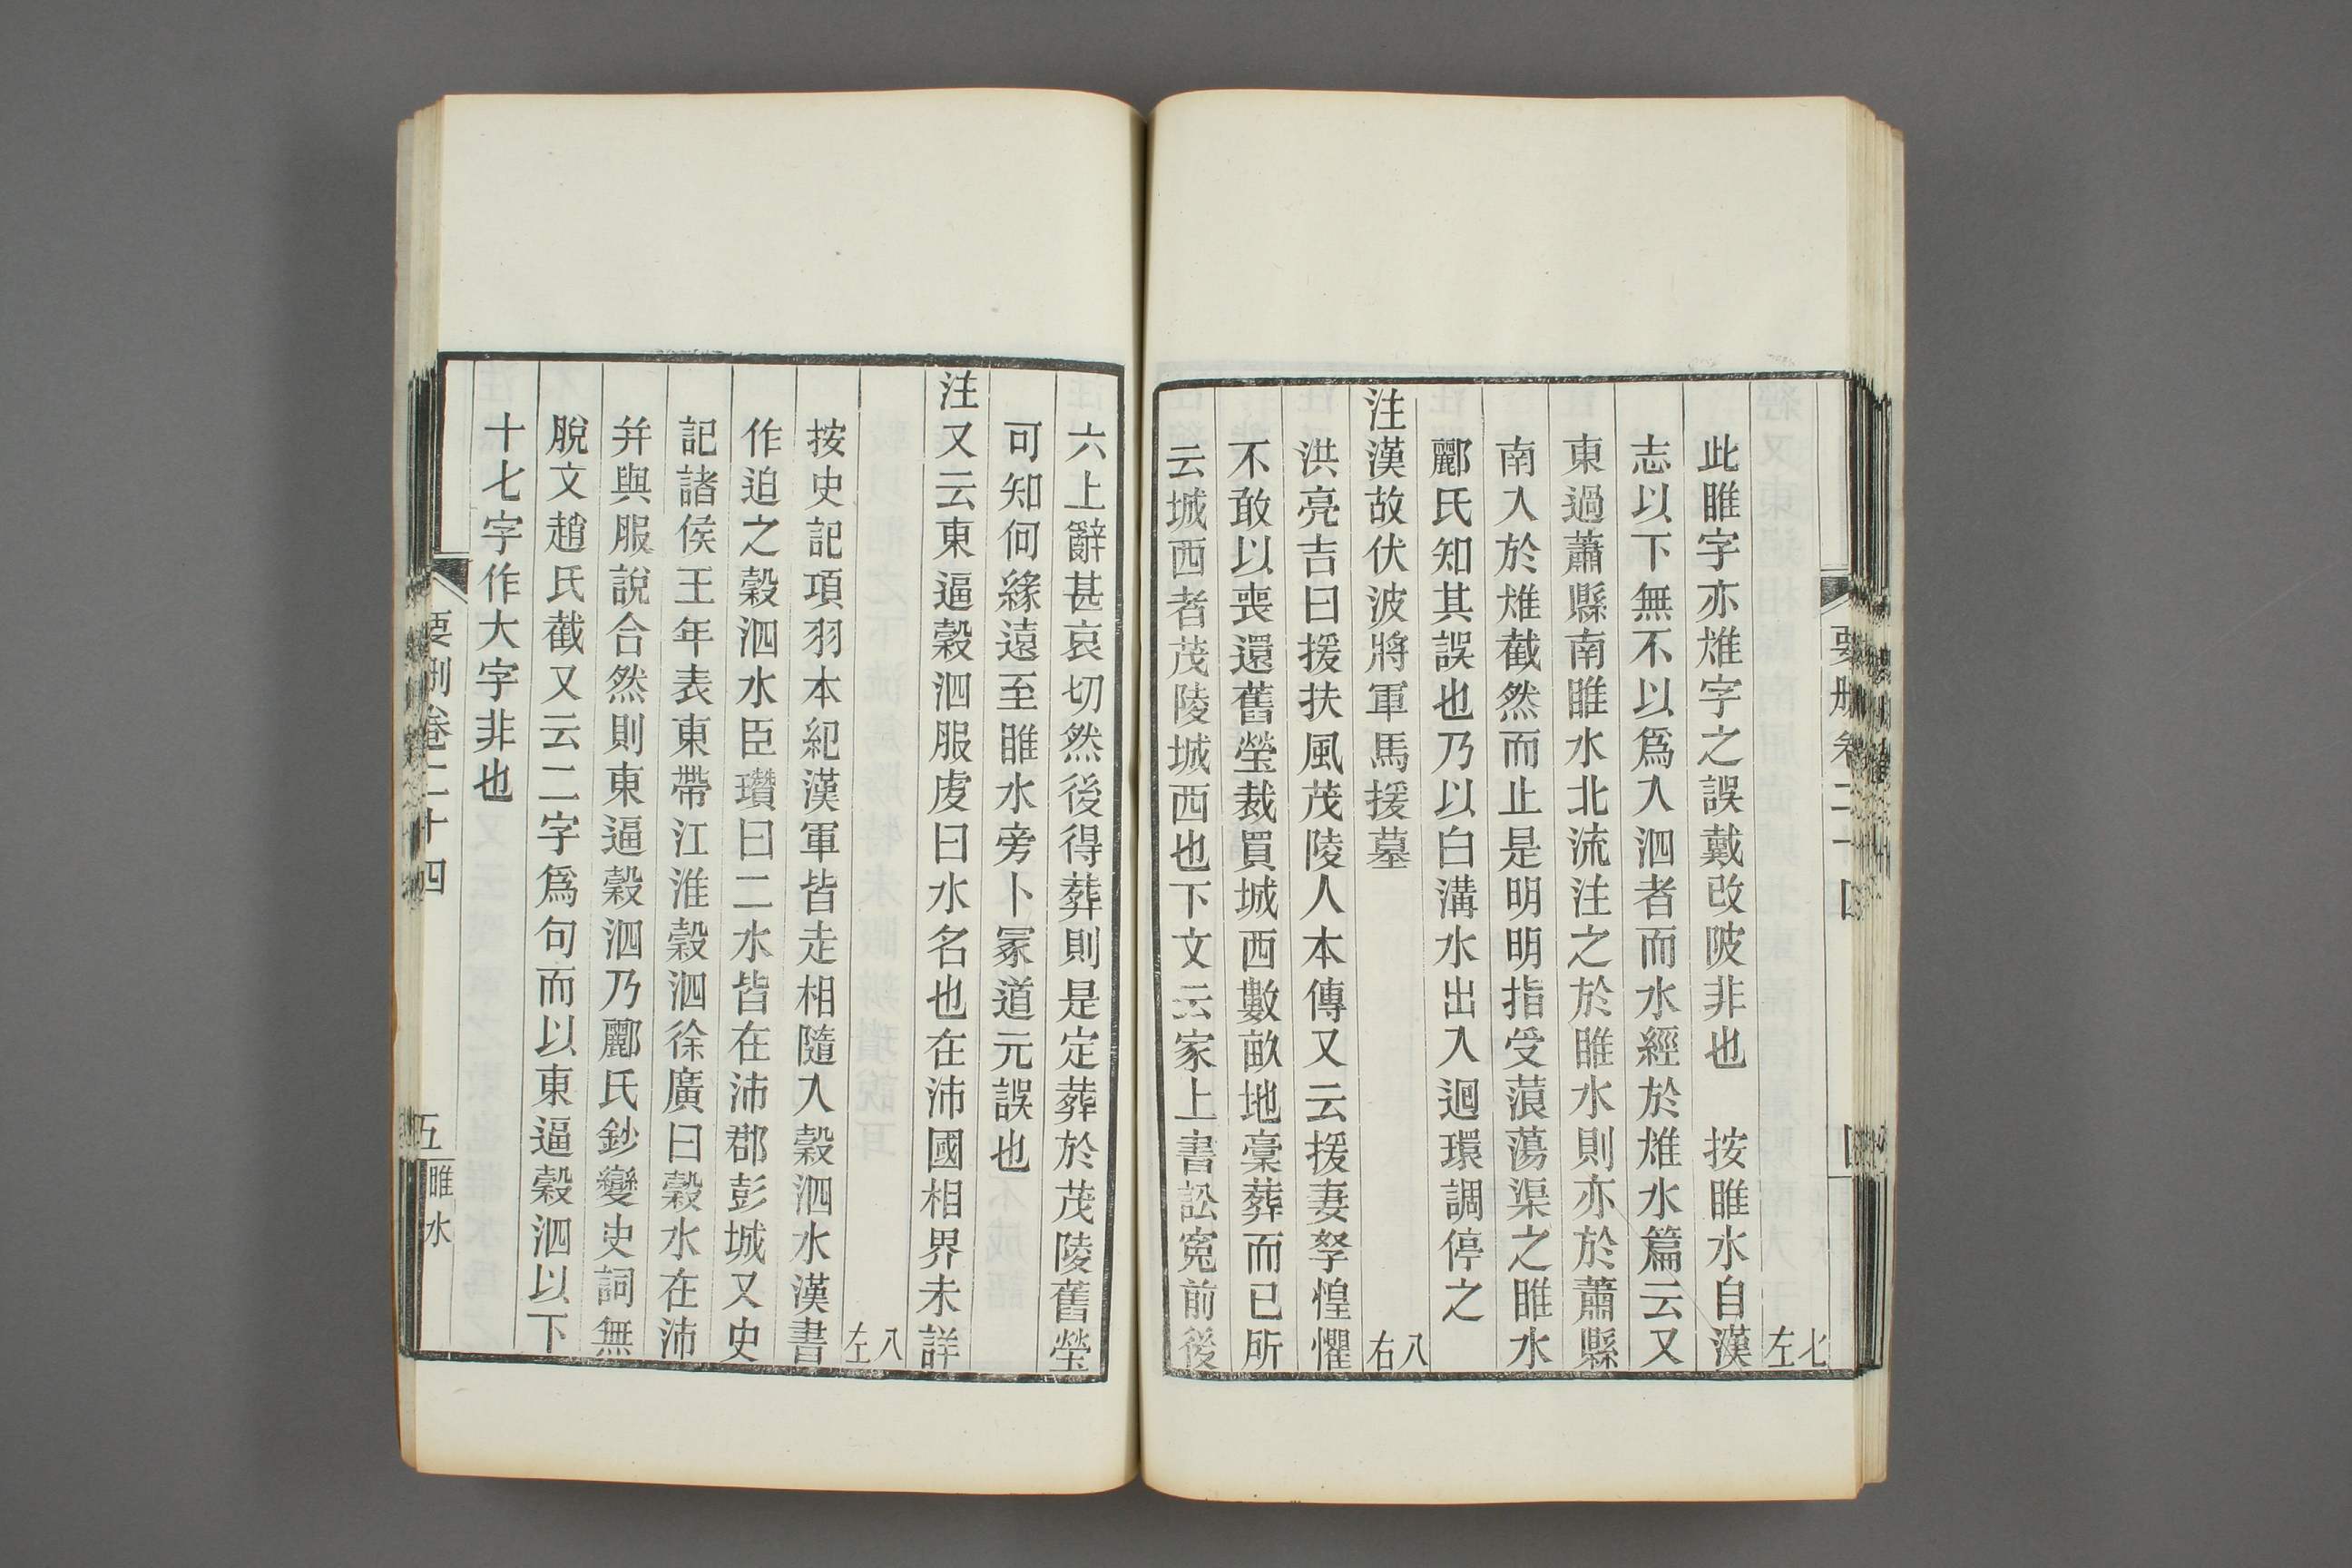 七左
此睢字亦雎字之誤戴改陂非也　按睢水自漢
志以下無不以爲入泗者而水經於雎水篇云又
東過蕭縣南睢水北流注之於睢水則亦於蕭縣
南入於雎截然而止是明明指受蒗蕩渠之睢水
酈氏知其誤也乃以白溝水出入迴環調停之
注漢故伏波將軍馬援墓　八右
洪亮吉曰援扶風茂陵人本傳又云援妻孥惶懼
不敢以喪還舊塋裁買城西數畝地槀葬而已所
云城西者茂陵城西也下文云家上書訟寃前後
六上辭甚哀切然後得葬則是定葬於茂陵舊塋
可知何緣遠至睢水旁卜冢道元誤也
注又云東逼穀泗服虔曰水名也在沛國相界未詳
八左
按史記項羽本紀漢軍皆走相隨入穀泗水漢書
作迫之穀泗水臣瓚曰二水皆在沛郡彭城又史
記諸侯王年表東帶江淮穀泗徐廣曰穀水在沛
幷與服說合然則東逼穀泗乃酈氏鈔變史詞無
脫文趙氏截又云二字爲句而以東逼穀泗以下
十七字作大字非也
要刪卷二十四
五
睢水